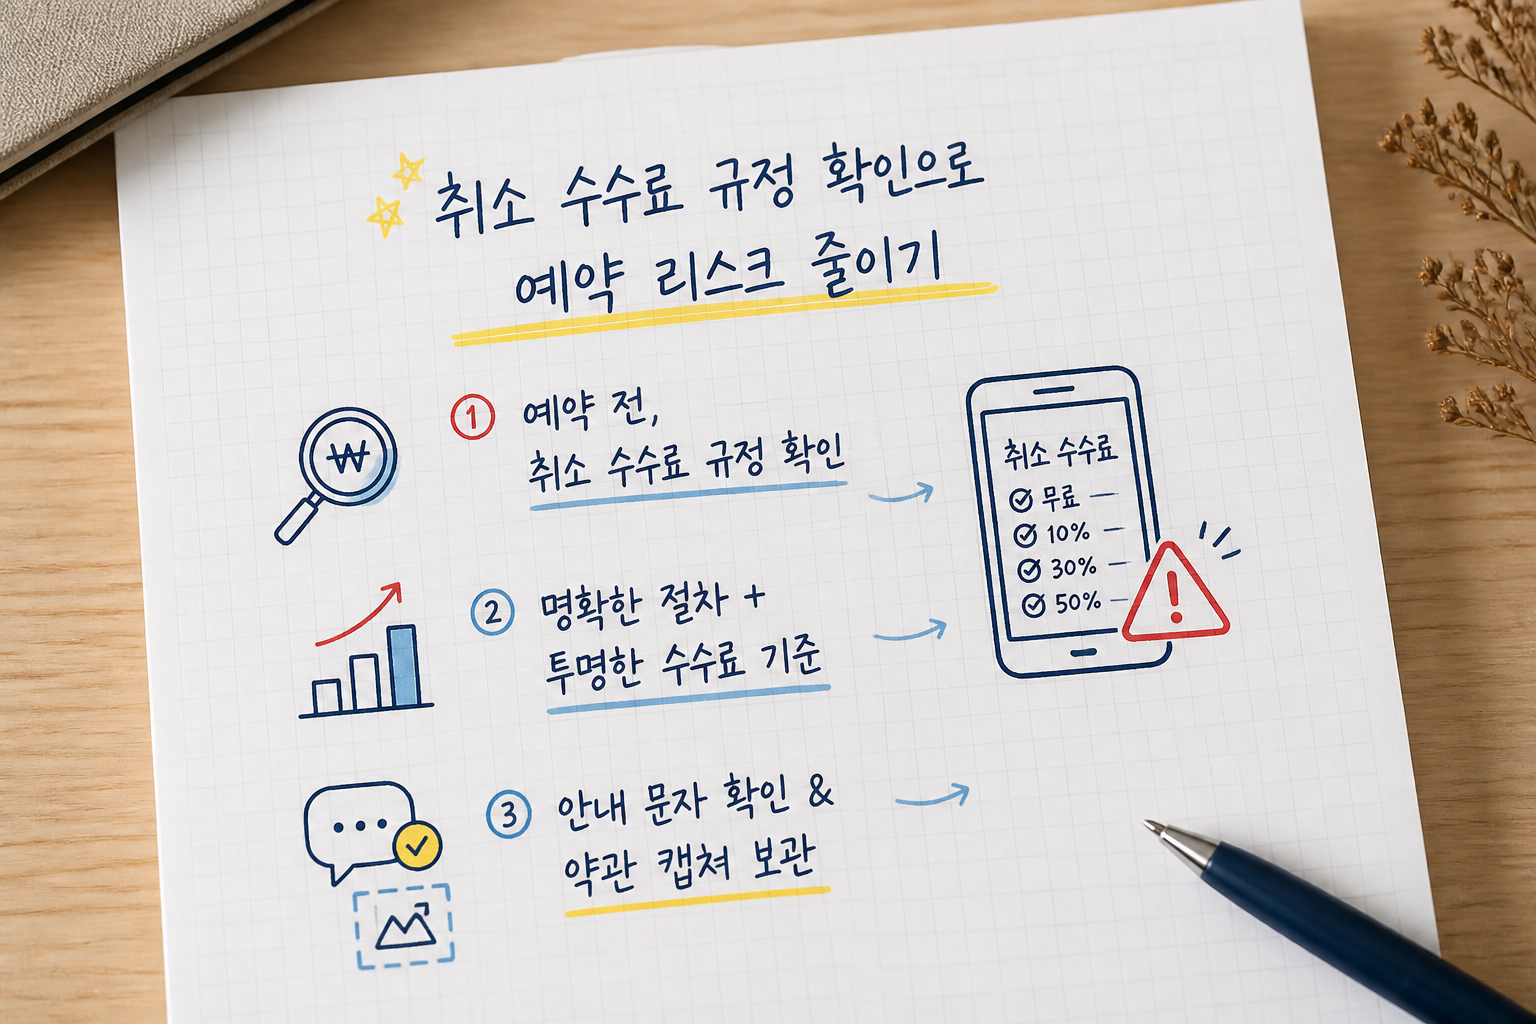 취소 수수료 규정 확인으로
예약 리스크 줄이기
1 예약 전,
취소 수수료 규정 확인
2 명확한 절차 +
투명한 수수료 기준
3 안내 문자 확인 &
약관 캡쳐 보관
₩
취소 수수료
무료
10%
30%
50%
!